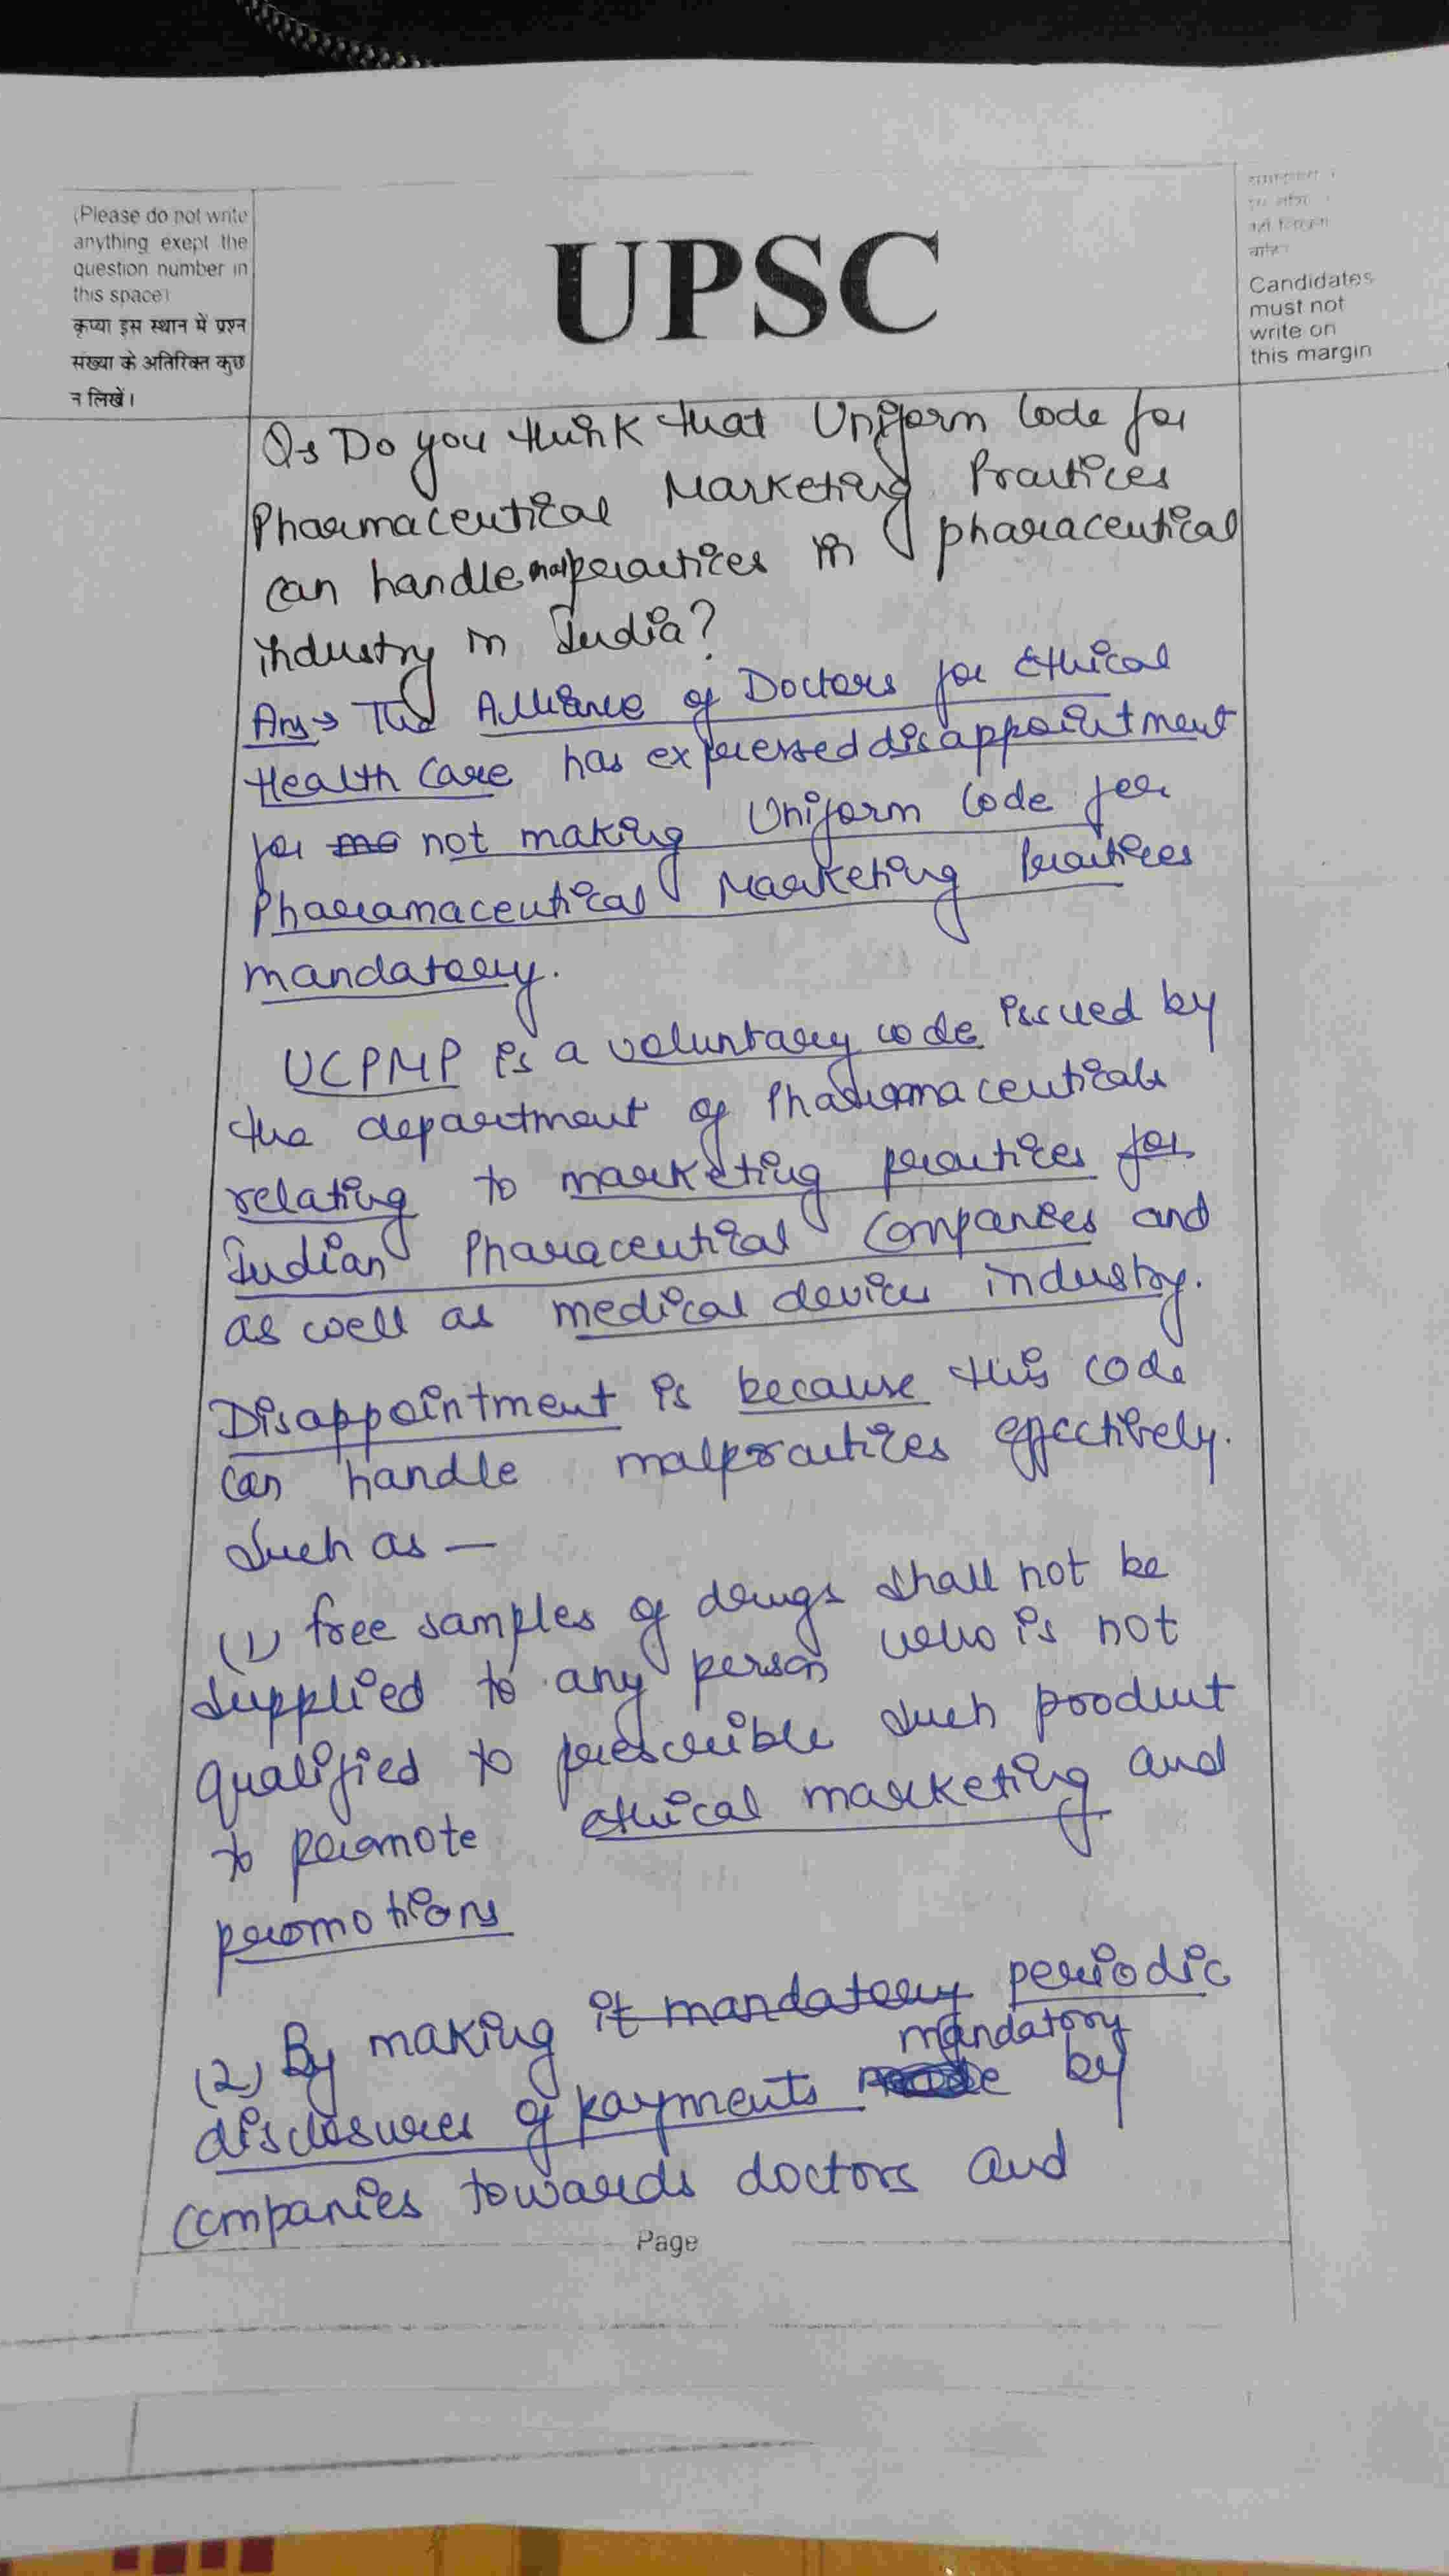 (Please do not write
anything exept the
question number in
this space)
कृप्या इस स्थान में प्रश्न
संख्या के अतिरिक्त कुछ
न लिखें।
UPSC
Candidates
must not
write on
this margin
Qs Do you think that Uniform Code for
Pharmaceutical Marketing Practices
can handle malpractices in pharaceutical
industry in India?
Ans → The Alliance of Doctors for Ethical
Health Care has expressed disappointment
for not making Uniform Code for
Pharamaceutical Marketing Practices
mandatory.
UCPMP is a voluntary code issued by
the department of Pharmaceuticals
relating to marketing practices for
Indian Pharaceutical Companies and
as well as medical device industry.
Disappointment is because this code
can handle malpractices effectively.
Such as —
(1) free samples of drugs shall not be
supplied to any person who is not
qualified to prescrible such product
to promote ethical marketing and
promotions
(2) By making it mandatory periodic
mandatory
disclosures of payments by
companies towards doctors and
Page